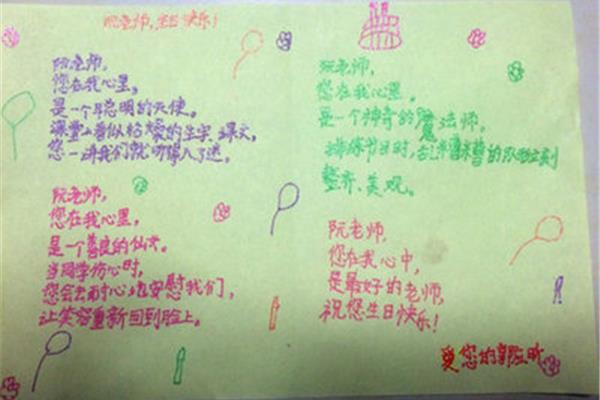 阮老师,生日快乐!
阮老师,
您在我心里,
是一个聪明的天使。
课堂上看似枯燥的生字课文,
您一讲我们就听得入了迷。
阮老师,
您在我心里,
是一个善良的仙女。
当同学伤心时,
您会去耐心地安慰我们,
让笑容重新回到脸上。
阮老师,
您在我心里。
是一个神奇的魔法师。
排练节目时,乱七八糟的队形立刻
整齐、美观。
阮老师,
您在我心中,
是最好的老师,
祝您生日快乐!
爱您的郭